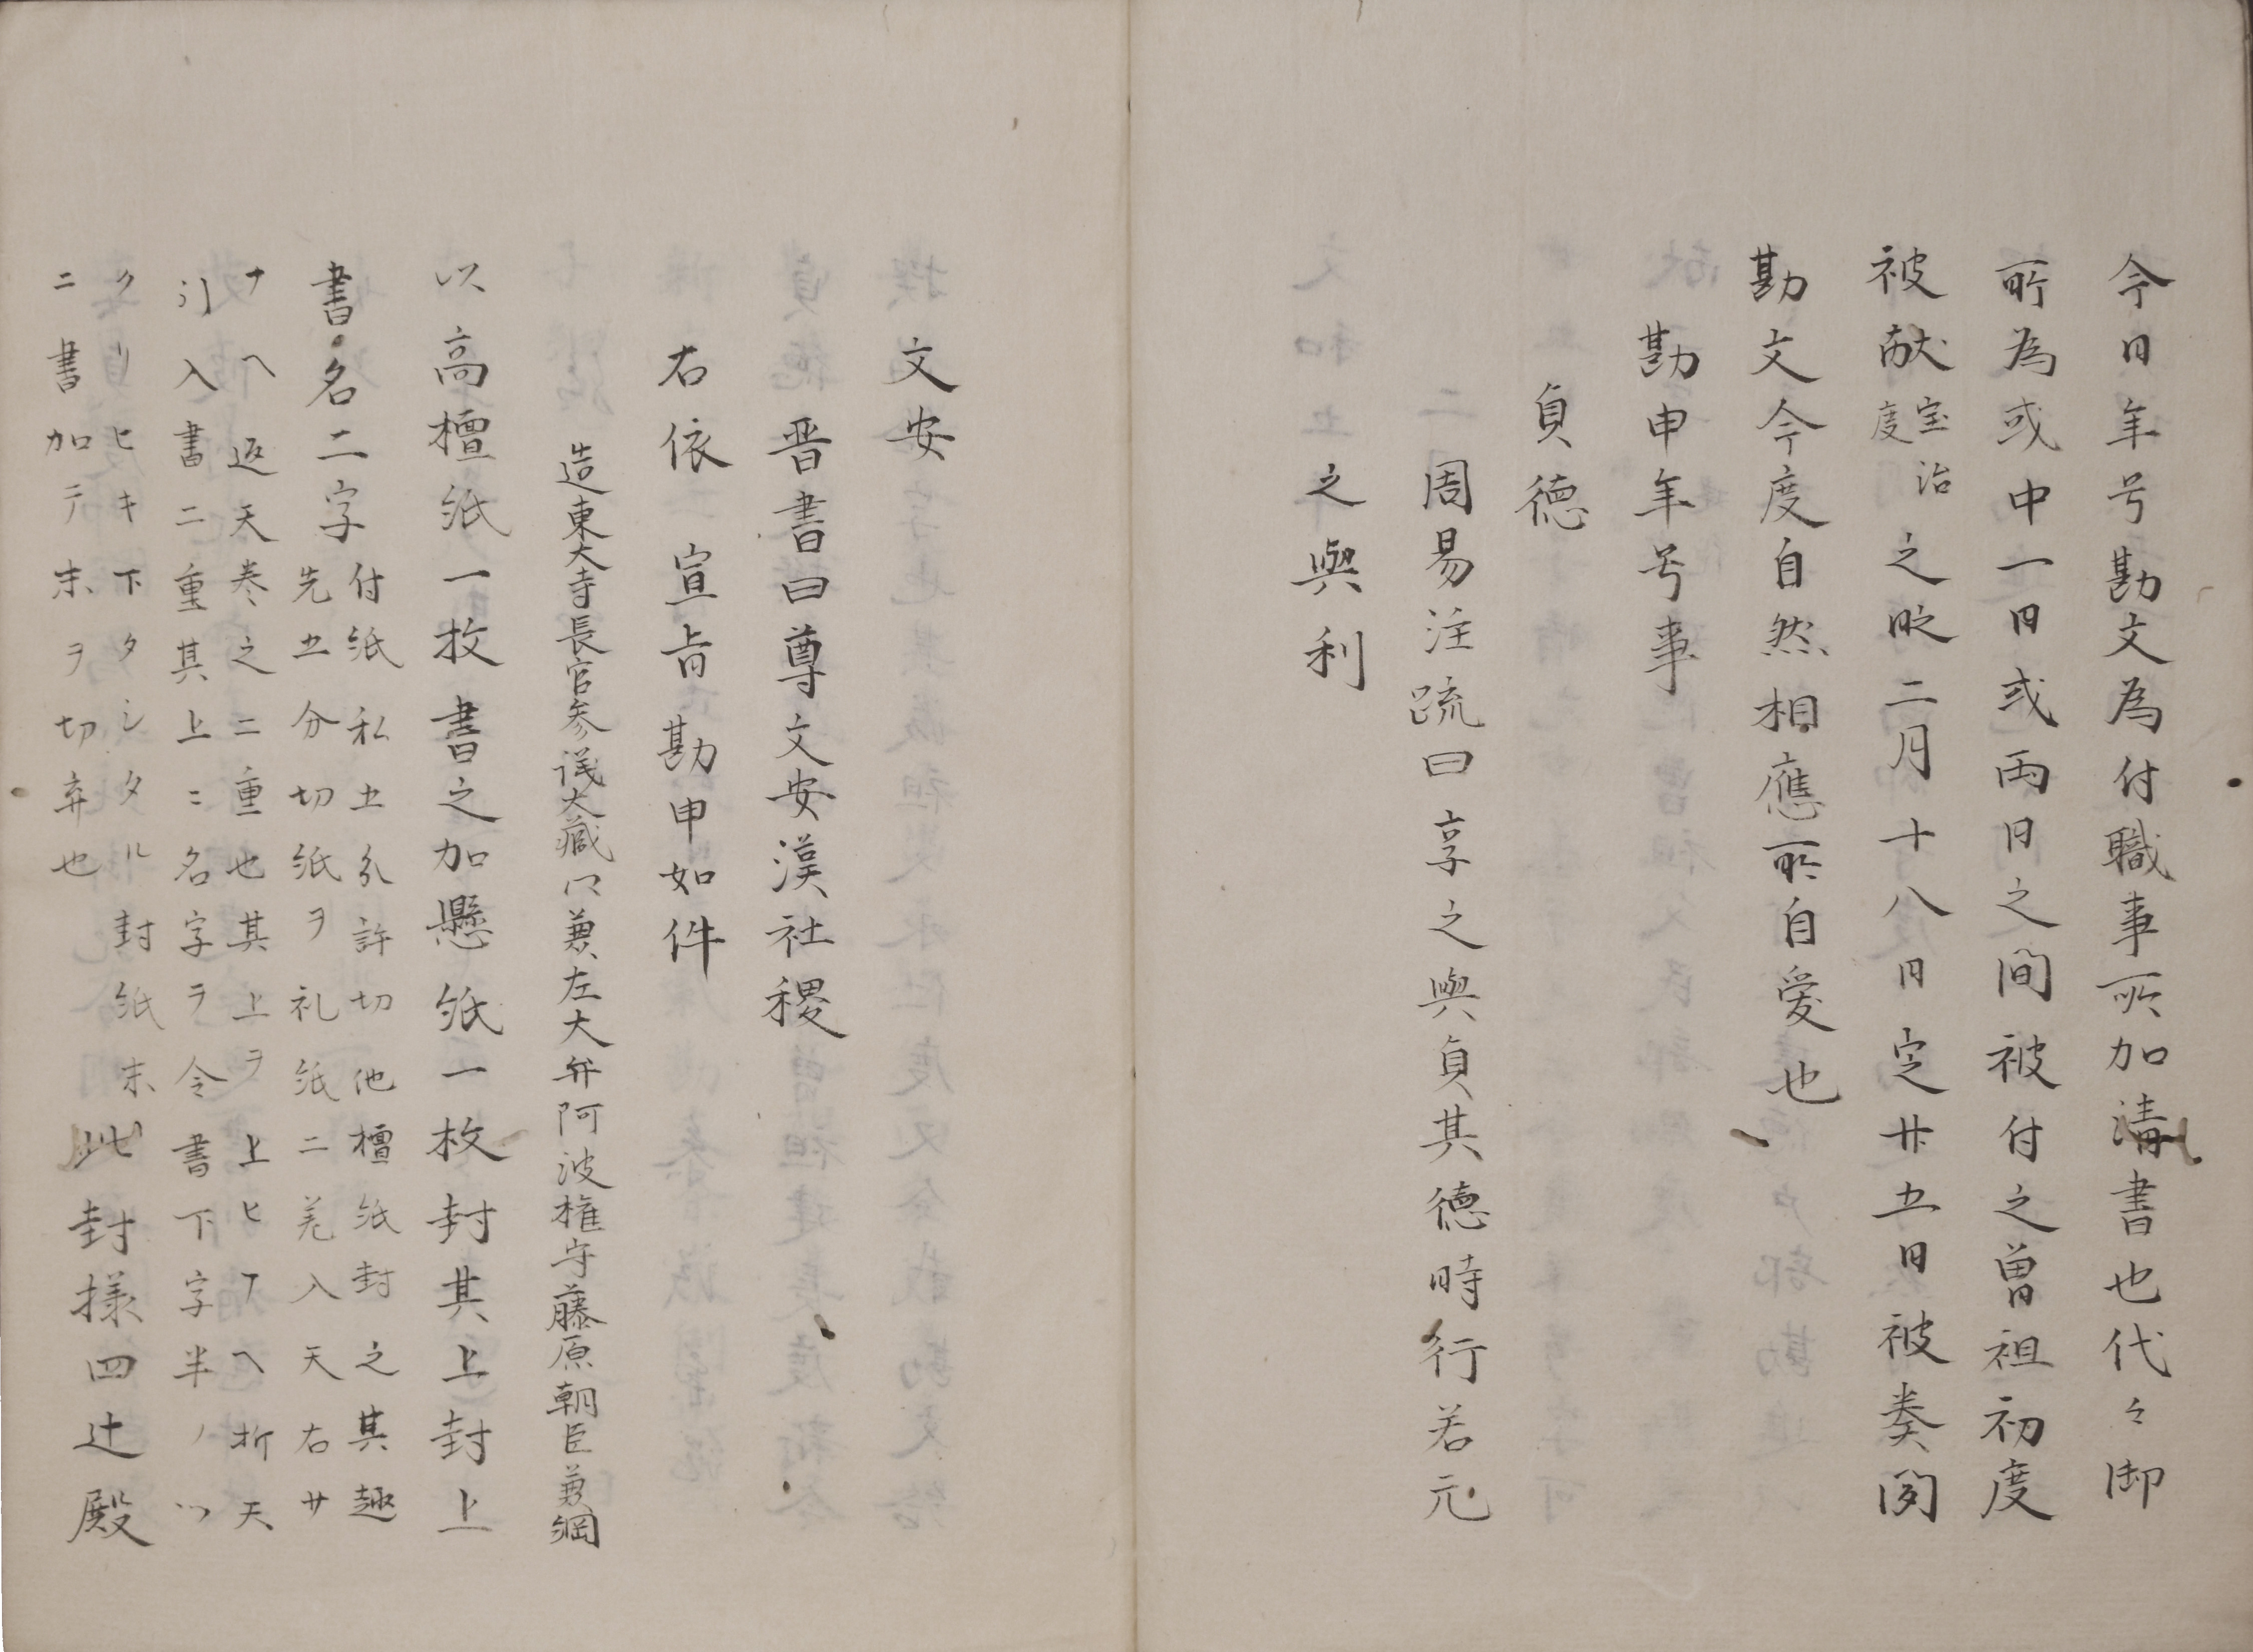 今日年号勘文為付職事所加清書也代々御
所為或中一日或両日之間被付之曽祖初度
被献宝治度之時二月十八日定廿五日被奏聞
勘文今度自然相應所自愛也
勘申年号事
貞徳
周易注䟽曰享之與貞其德時行若元
之與利
文安
晋書曰尊文安漢社稷
右依宣旨勘申如件
造東大寺長官参議大蔵卿兼左大弁阿波権守藤原朝臣兼綱
以高檀紙一枚書之加懸紙一枚封其上封上
書名二字
付紙私五分許切他檀紙封之其趣
先五分切紙ヲ礼紙ニ差入天右サ
ナヘ返天巻之二重也其上ヲ上ヒナヘ折天
引入書二重其上ニ名字ヲ令書下字半ノツ
クリヒキ下タシタル封紙末
ニ書加テ末ヲ切弃也
此封様四辻殿